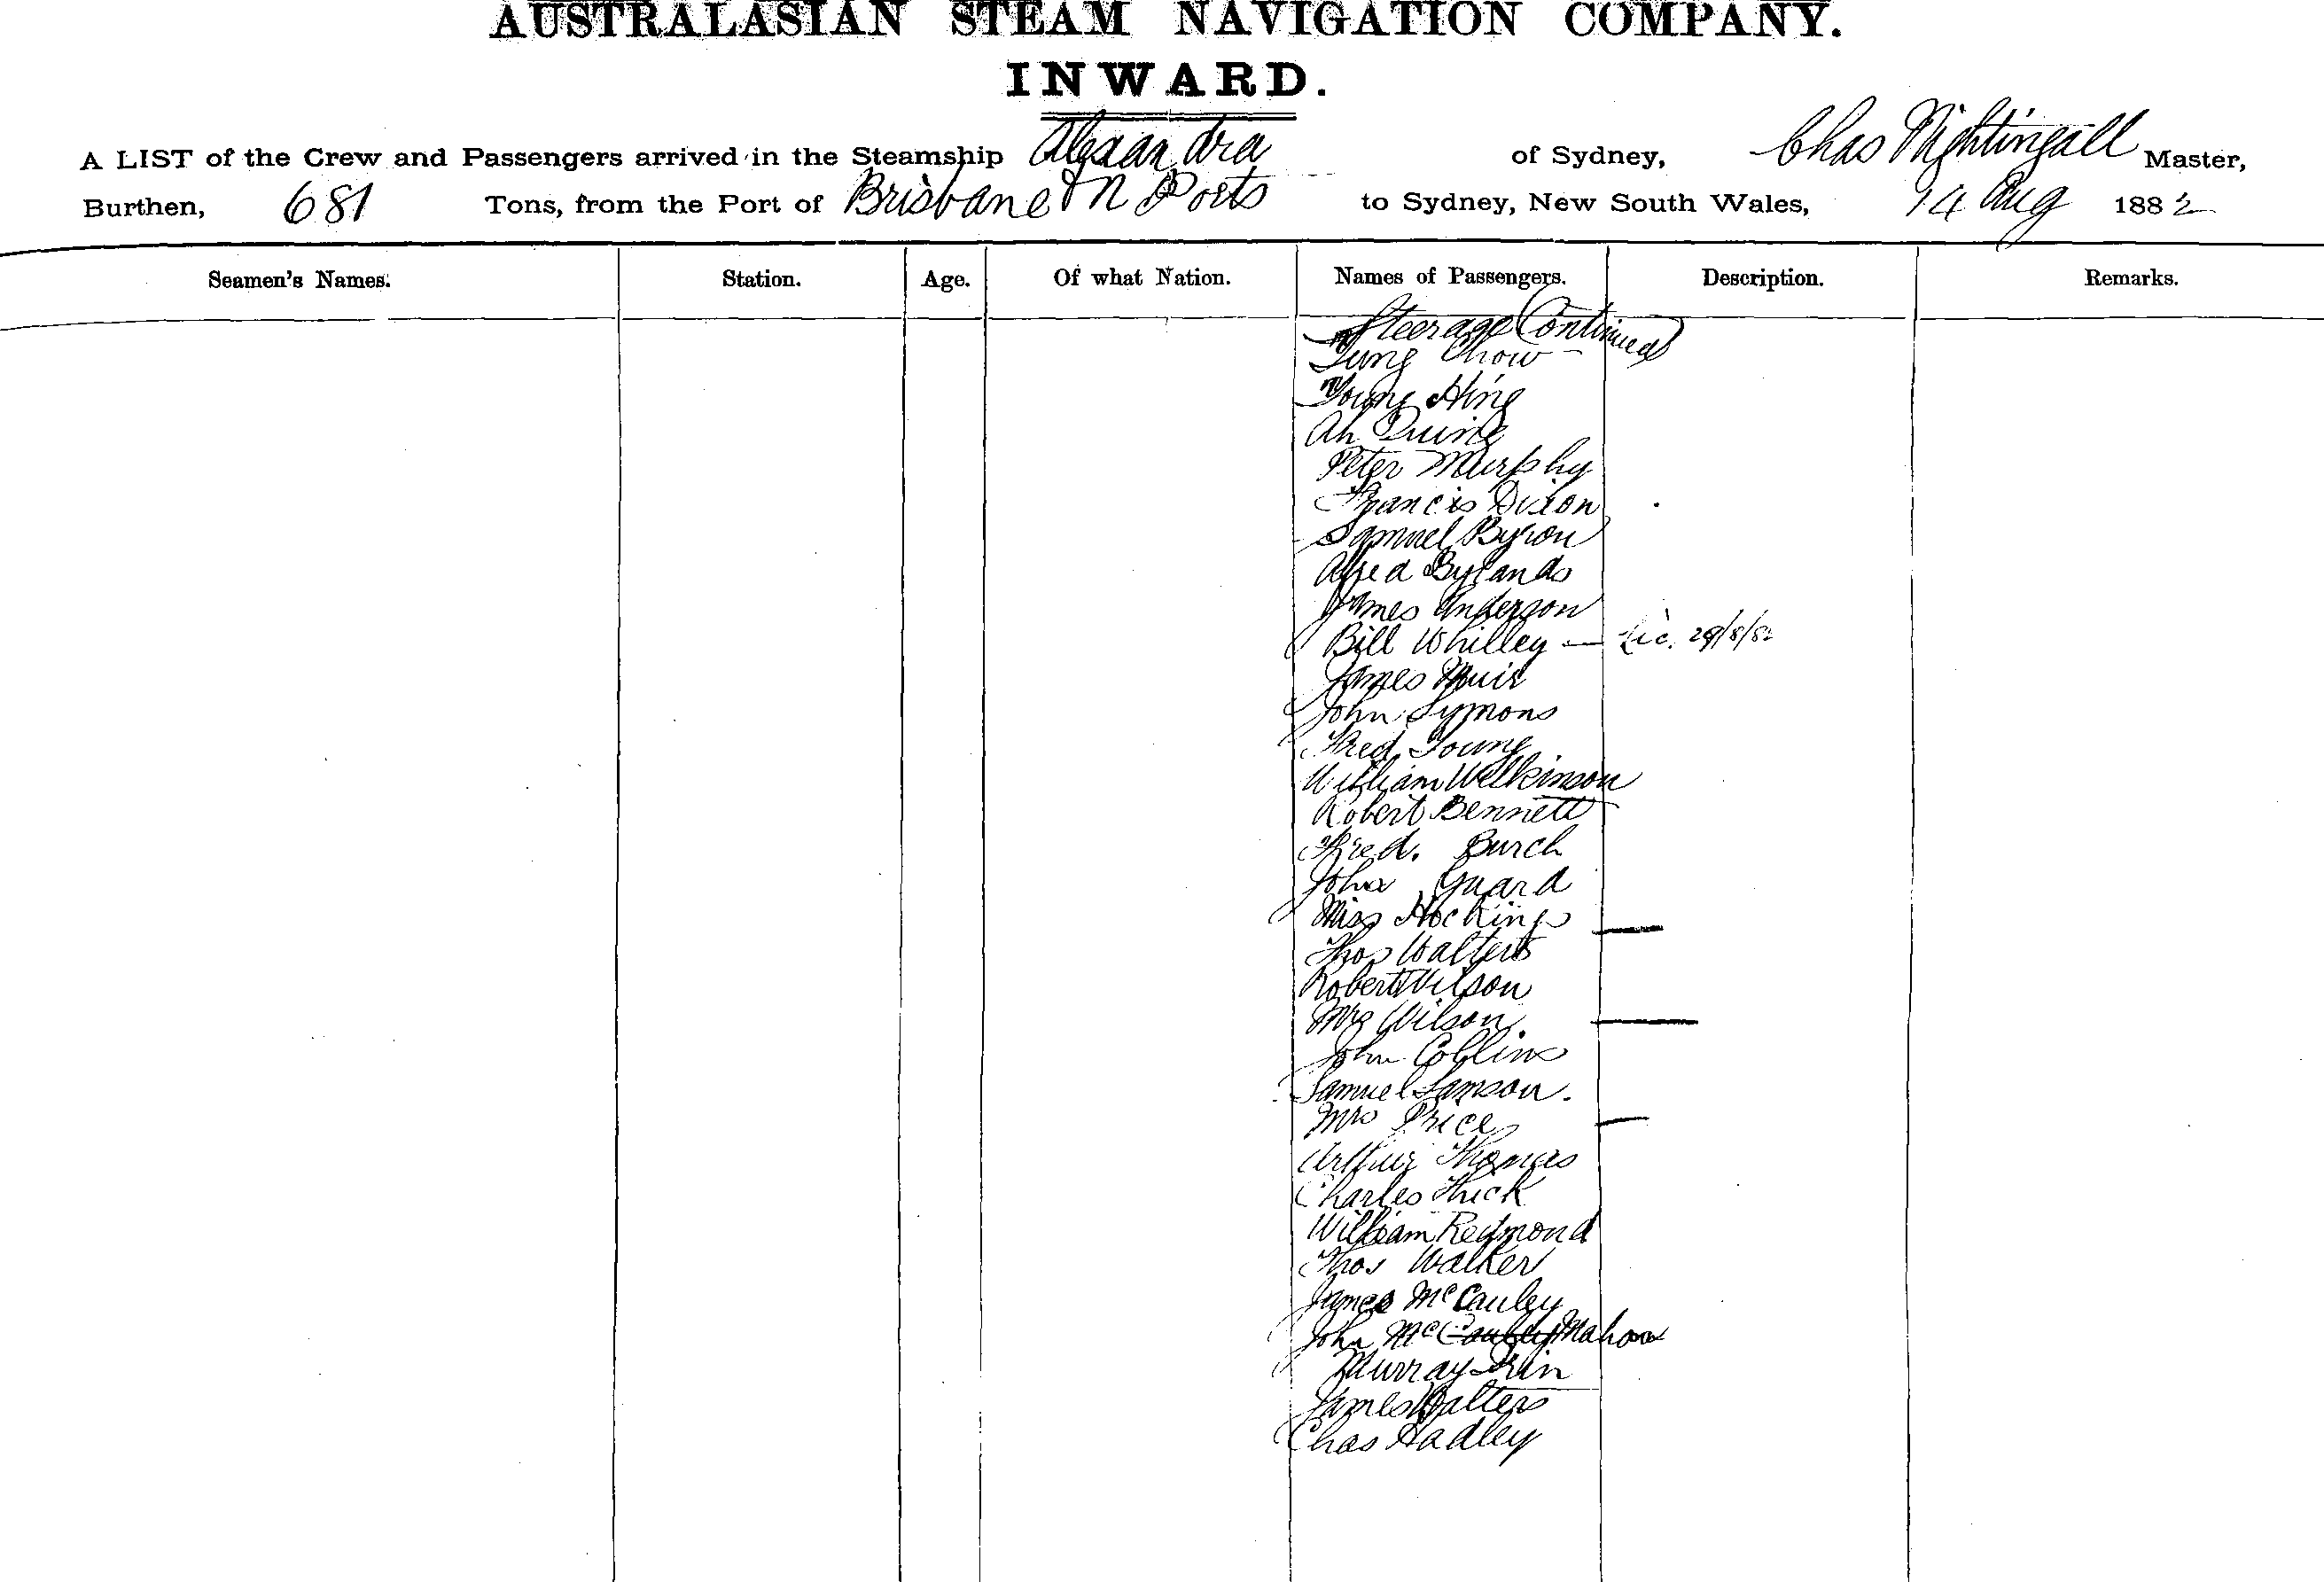 AUSTRALASIAN STEAM NAVIGATION COMPANY.
INWARD.
A LIST of the Crew and Passengers arrived in the Steamship Alexandra of Sydney, Chas Nightingall Master,
Burthen, 681 Tons, from the Port of Brisbane & N Ports to Sydney, New South Wales, 14 Aug 1882
Seamen's Names. Station. Age. Of what Nation. Names of Passengers. Description. Remarks.
Steerage Continued
Tung Chow
Young Hing
Ah Quing
Peter Murphy
Francis Dixon
Samuel Byron
Alfred Bylands
James Anderson
Bill Whilley — Lic. 29/8/82
James Muir
John Symons
Fred Young
William Wilkinson
Robert Bennett
Fred. Burch
John Guard
Miss Hockings —
Thos Walters
Robert Wilson
Mrs Wilson. —
John Collins
Samuel Samson.
Mrs Price —
Arthur Thomas
Charles Thick
William Redmond
Thos Walker
James McCauley
John McCauley Mahon
Murray
James Walters
Chas Hadley